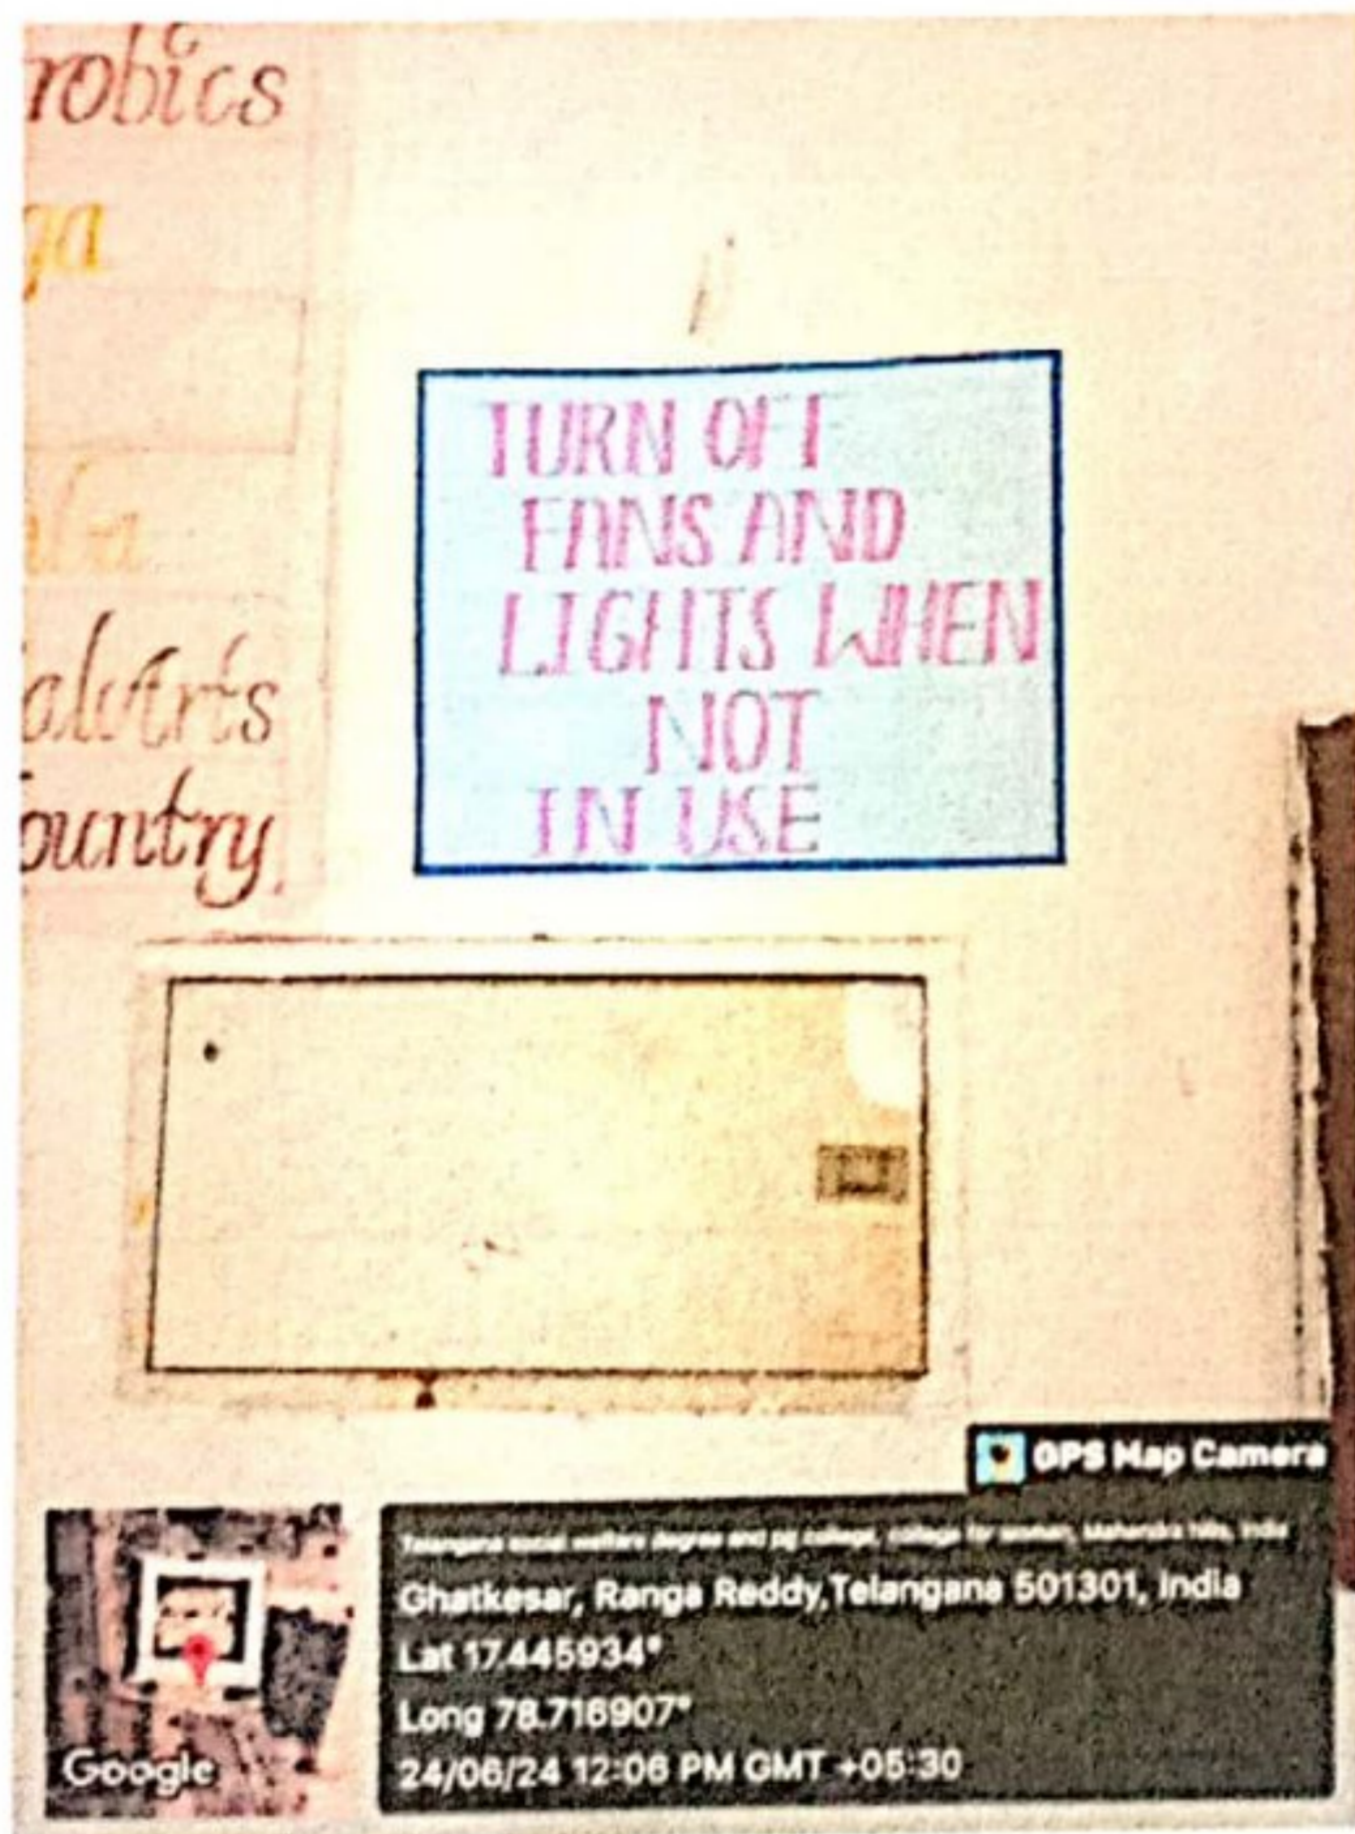 robics
ga
alArts
ountry
TURN OFF
FANS AND
LIGHTS WHEN
NOT
IN USE
GPS Map Camera
Telangana social welfare degree and pg college, college for women, Mahendra hills, India
Ghatkesar, Ranga Reddy,Telangana 501301, India
Lat 17.445934°
Long 78.716907°
24/06/24 12:06 PM GMT +05:30
Google